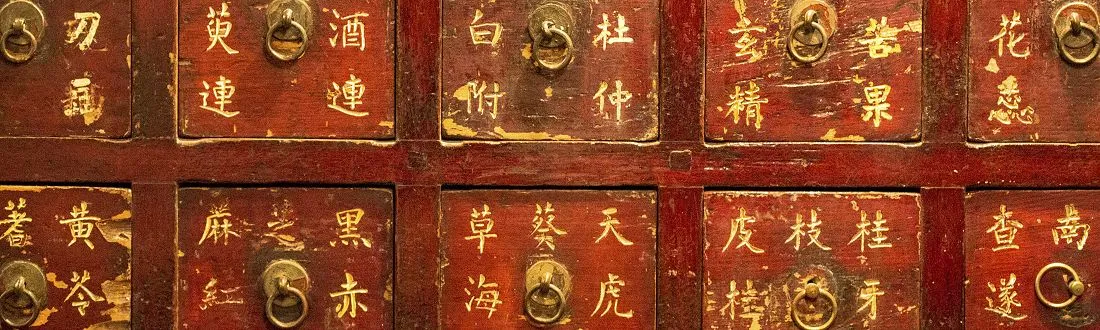 刀
酒連
萸連
杜仲
白附
苦果
玄精
花
黃芩
蓍
黑芝麻
赤
紅
天葵草
虎
海
桂枝皮
牙
桂
南查
遂